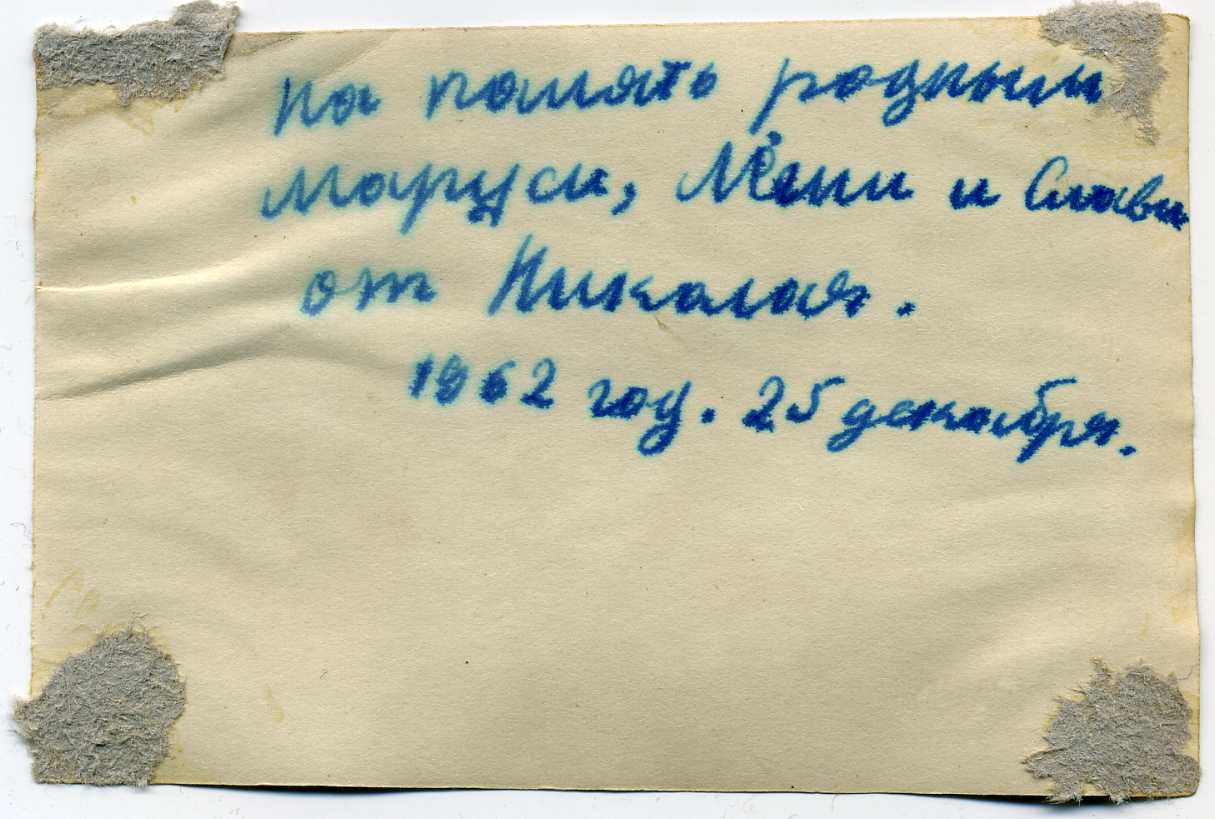 на память родным
Маруси, Лёни и Славы
от Николая.
1962 год. 25 декабря.